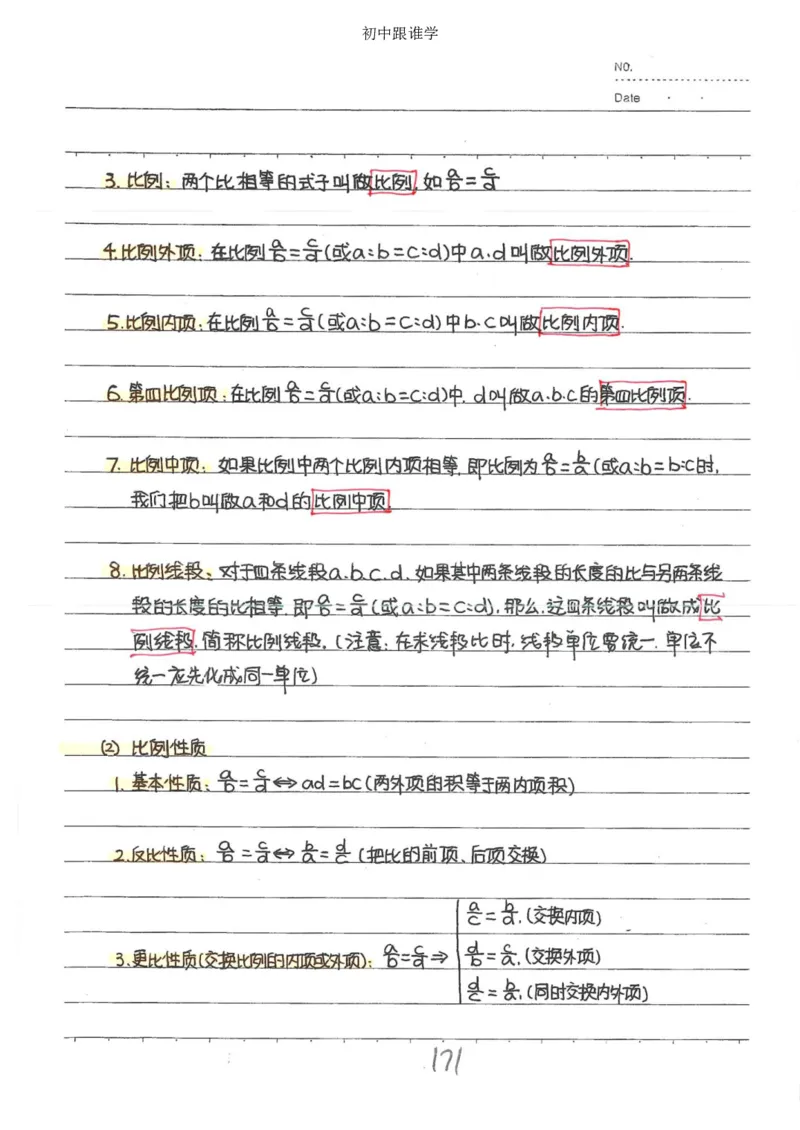 初中跟谁学
NO.
Date
3. 比例：两个比相等的式子叫做比例，如 a/b = c/d
4. 比例外项：在比例 a/b = c/d (或a:b=c:d)中a、d叫做比例外项.
5. 比例内项：在比例 a/b = c/d (或a:b=c:d)中b、c叫做比例内项.
6. 第四比例项：在比例 a/b = c/d (或a:b=c:d)中，d叫做a、b、c的第四比例项.
7. 比例中项：如果比例中两个比例内项相等，即比例为 a/b = b/a (或a:b=b:c时，
我们把b叫做a和d的比例中项.
8. 比例线段：对于四条线段a、b、c、d，如果其中两条线段的长度的比与另两条线
段的长度的比相等，即 a/b = c/d (或a:b=c:d)，那么，这四条线段叫做成比
例线段，简称比例线段。(注意：在求线段比时，线段单位要统一，单位不
统一应先化成同一单位)
(2) 比例性质
1. 基本性质：a/b = c/d ⇔ ad=bc (两外项的积等于两内项积)
2. 反比性质：a/b = c/d ⇔ b/a = d/c (把比的前项、后项交换)
a/c = b/d，(交换内项)
3. 更比性质(交换比例的内项或外项)：a/b = c/d ⇒ d/b = c/a，(交换外项)
d/c = b/a，(同时交换内外项)
171